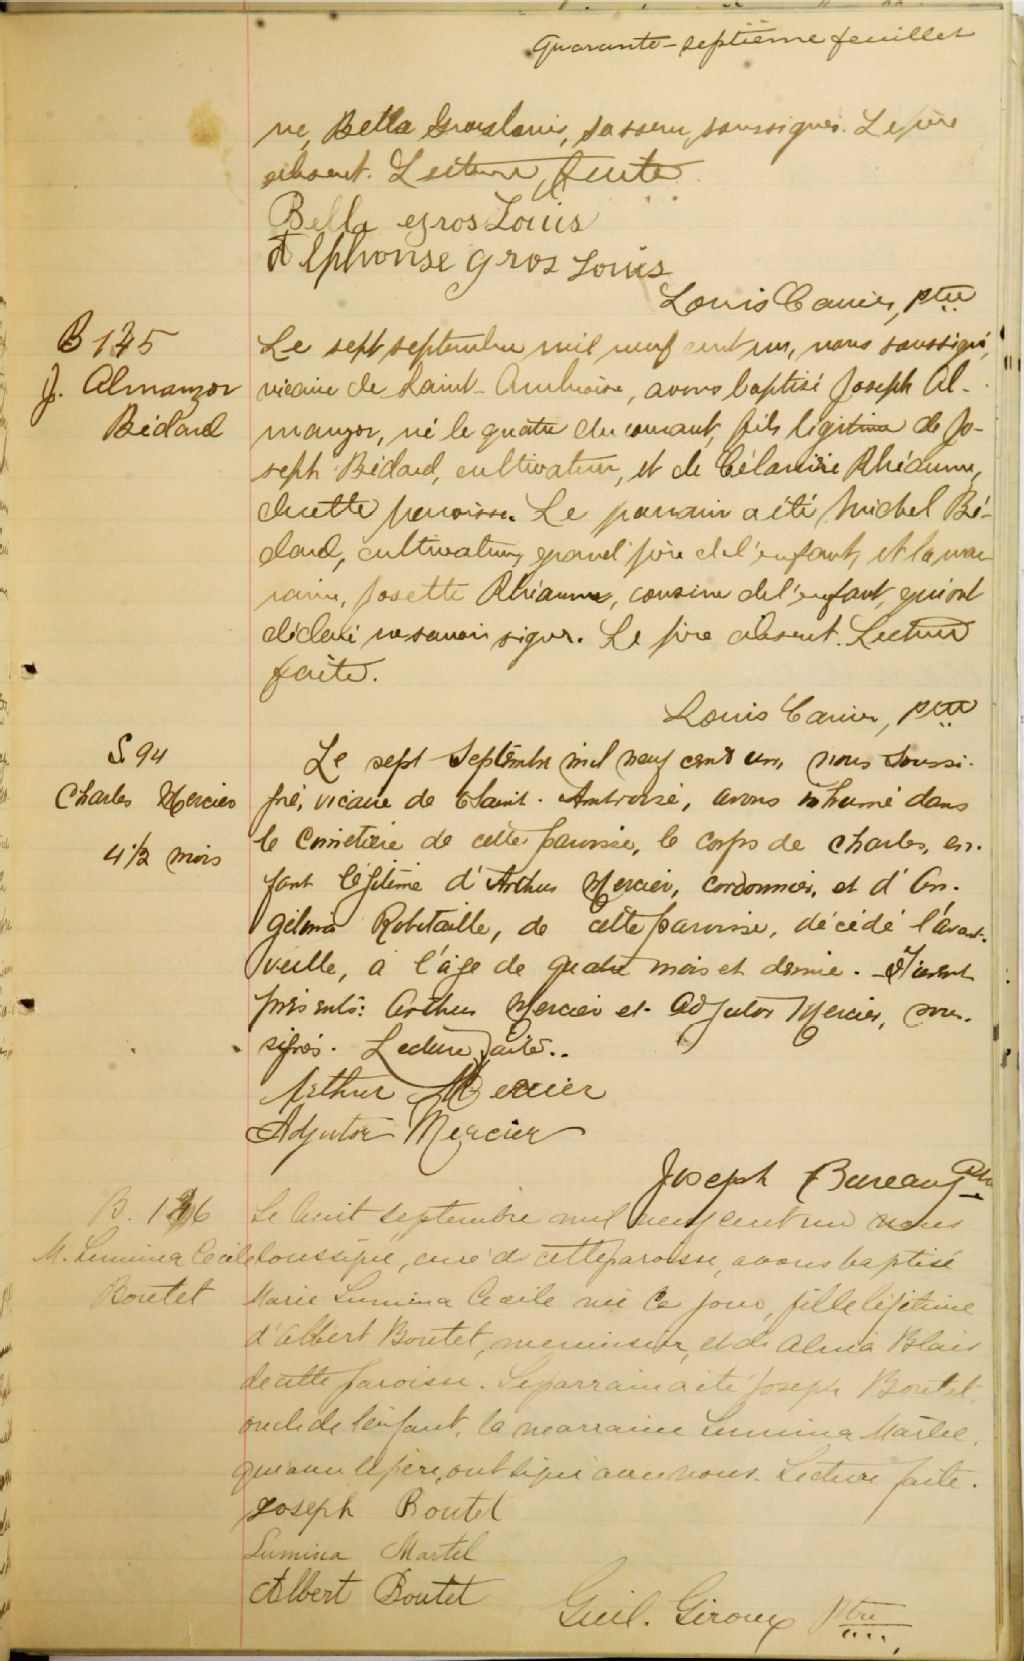 Quarante-septième feuillet
ne, Bella Groslouis, sa soeur, soussignés. Le père
absent. Lecture faite.
Bella gros Louis
Alphonse gros Louis
Louis Carrier, ptre
B 135
J. Almanzor
Bédard
Le sept septembre mil neuf cent un, nous soussigné,
vicaire de Saint-Ambroise, avons baptisé Joseph Al-
manzor, né le quatre du courant, fils légitime de Jo-
seph Bédard, cultivateur, et de Célanire Rhéaume,
de cette paroisse. Le parrain a été Michel Bé-
dard, cultivateur, grand'père de l'enfant, et la mar-
raine, Josette Rhéaume, cousine de l'enfant, qui ont
déclaré ne savoir signer. Le père absent. Lecture
faite.
Louis Carrier, ptre
S. 94
Charles Mercier
4 1/2 mois
Le sept Septembre mil neuf cent un, nous soussi-
gné, vicaire de Saint-Ambroise, avons inhumé dans
le cimetière de cette paroisse, le corps de Charles, en-
fant légitime d'Arthur Mercier, cordonnier, et d'An-
gélina Robitaille, de cette paroisse, décédé l'avant-
veille, à l'âge de quatre mois et demie. Etaient
présents: Arthur Mercier et Adjutor Mercier, sous-
signés. Lecture faite..
Arthur Mercier
Adjutor Mercier
Joseph Bureau, Ptre
B. 136
M. Lumina Cécile
Boutet
Le huit septembre mil neuf cent un nous
soussigné, curé de cette paroisse, avons baptisé
Marie Lumina Cécile née ce jour, fille légitime
d'Albert Boutet, menuisier, et de Alma Blais
de cette paroisse. Le parrain a été Joseph Boutet,
oncle de l'enfant, la marraine Lumina Martel,
qui avec le père, ont signé avec nous. Lecture faite.
Joseph Boutet
Lumina Martel
Albert Boutet
Guil. Giroux ptre